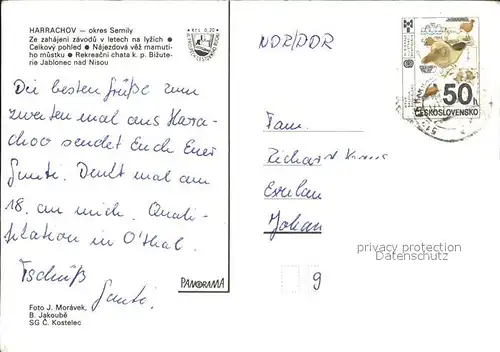 HARRACHOV – okres Semily
Ze zahájení závodů v letech na lyžích •
Celkový pohled • Nájezdová věž mamutí-
ho můstku • Rekreační chata k. p. Bižute-
rie Jablonec nad Nisou
Kčs 0,20
Die besten Grüße zum
zweiten mal aus Harra-
chov sendet Euch Euer
Denkt mal am
18. an mich. Quali-
fikation in O'thal.
Tschüß
PANORAMA
Foto J. Morávek,
B. Jakoubě
SG Č. Kostelec
NDR/DDR
50 h
ČESKOSLOVENSKO
Fam.
Richard
Johan
9
privacy protection
Datenschutz